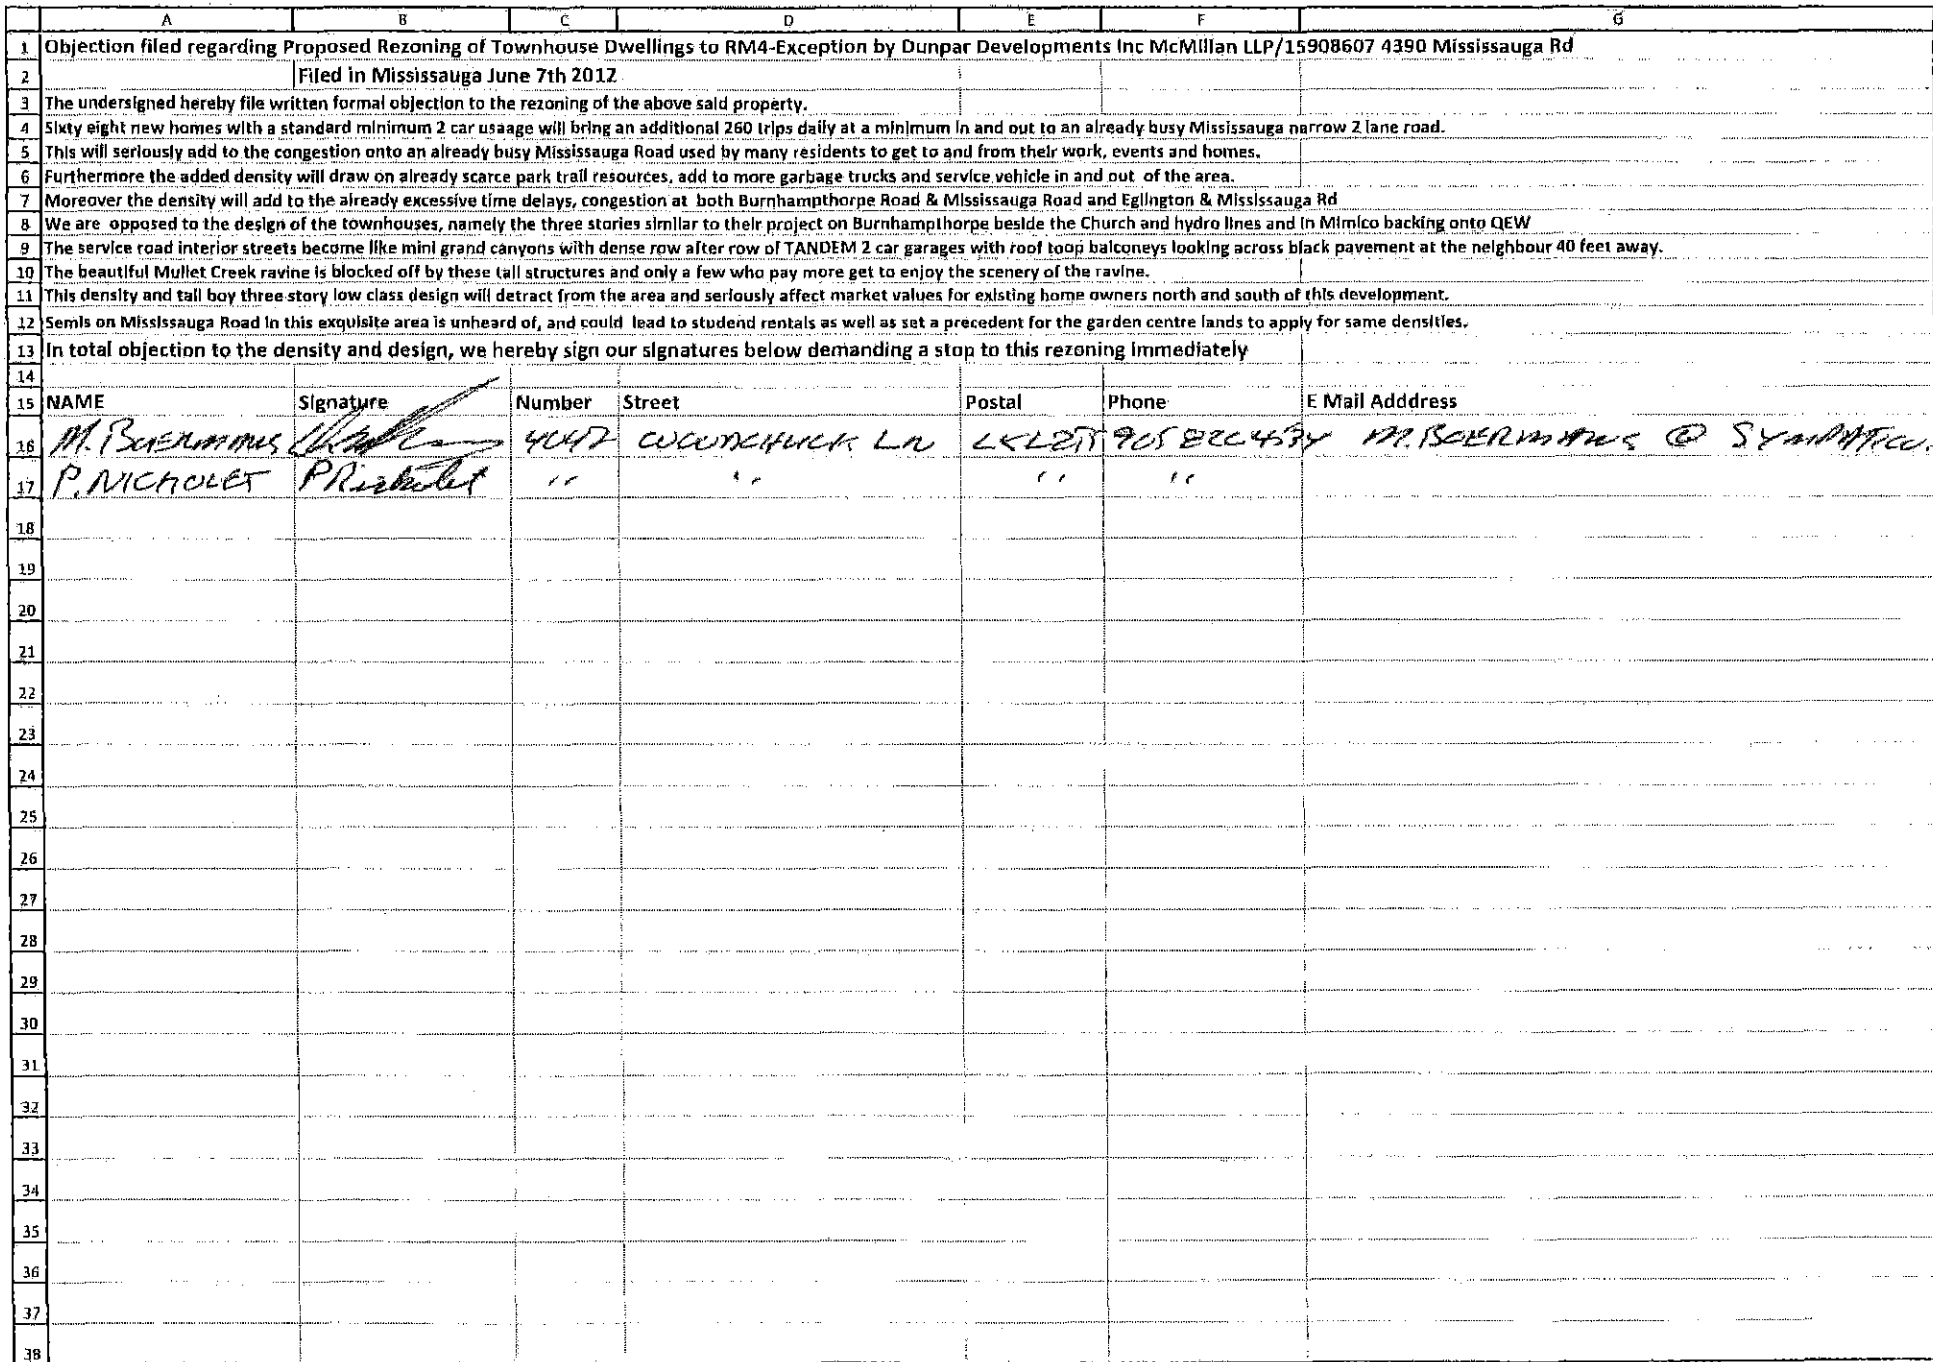 A B C D E F G
1 Objection filed regarding Proposed Rezoning of Townhouse Dwellings to RM4-Exception by Dunpar Developments Inc McMillan LLP/15908607 4390 Mississauga Rd
2 Filed in Mississauga June 7th 2012
3 The undersigned hereby file written formal objection to the rezoning of the above said property.
4 Sixty eight new homes with a standard minimum 2 car usaage will bring an additional 260 trips daily at a minimum in and out to an already busy Mississauga narrow 2 lane road.
5 This will seriously add to the congestion onto an already busy Mississauga Road used by many residents to get to and from their work, events and homes.
6 Furthermore the added density will draw on already scarce park trail resources, add to more garbage trucks and service vehicle in and out of the area.
7 Moreover the density will add to the already excessive time delays, congestion at both Burnhampthorpe Road & Mississauga Road and Eglington & Mississauga Rd
8 We are opposed to the design of the townhouses, namely the three stories similar to their project on Burnhampthorpe beside the Church and hydro lines and in Mimico backing onto QEW
9 The service road interior streets become like mini grand canyons with dense row after row of TANDEM 2 car garages with roof toop balconeys looking across black pavement at the neighbour 40 feet away.
10 The beautiful Mullet Creek ravine is blocked off by these tall structures and only a few who pay more get to enjoy the scenery of the ravine.
11 This density and tall boy three story low class design will detract from the area and seriously affect market values for existing home owners north and south of this development.
12 Semis on Mississauga Road in this exquisite area is unheard of, and could lead to studend rentals as well as set a precedent for the garden centre lands to apply for same densities.
13 In total objection to the density and design, we hereby sign our signatures below demanding a stop to this rezoning immediately
14
15 NAME Signature Number Street Postal Phone E Mail Adddress
16 M. BOERMANS WOODCHUCK LN 905 M.BOERMANS @ SYMPATICO.
17 P. NICHOLET PNicholet " " " "
18
19
20
21
22
23
24
25
26
27
28
29
30
31
32
33
34
35
36
37
38